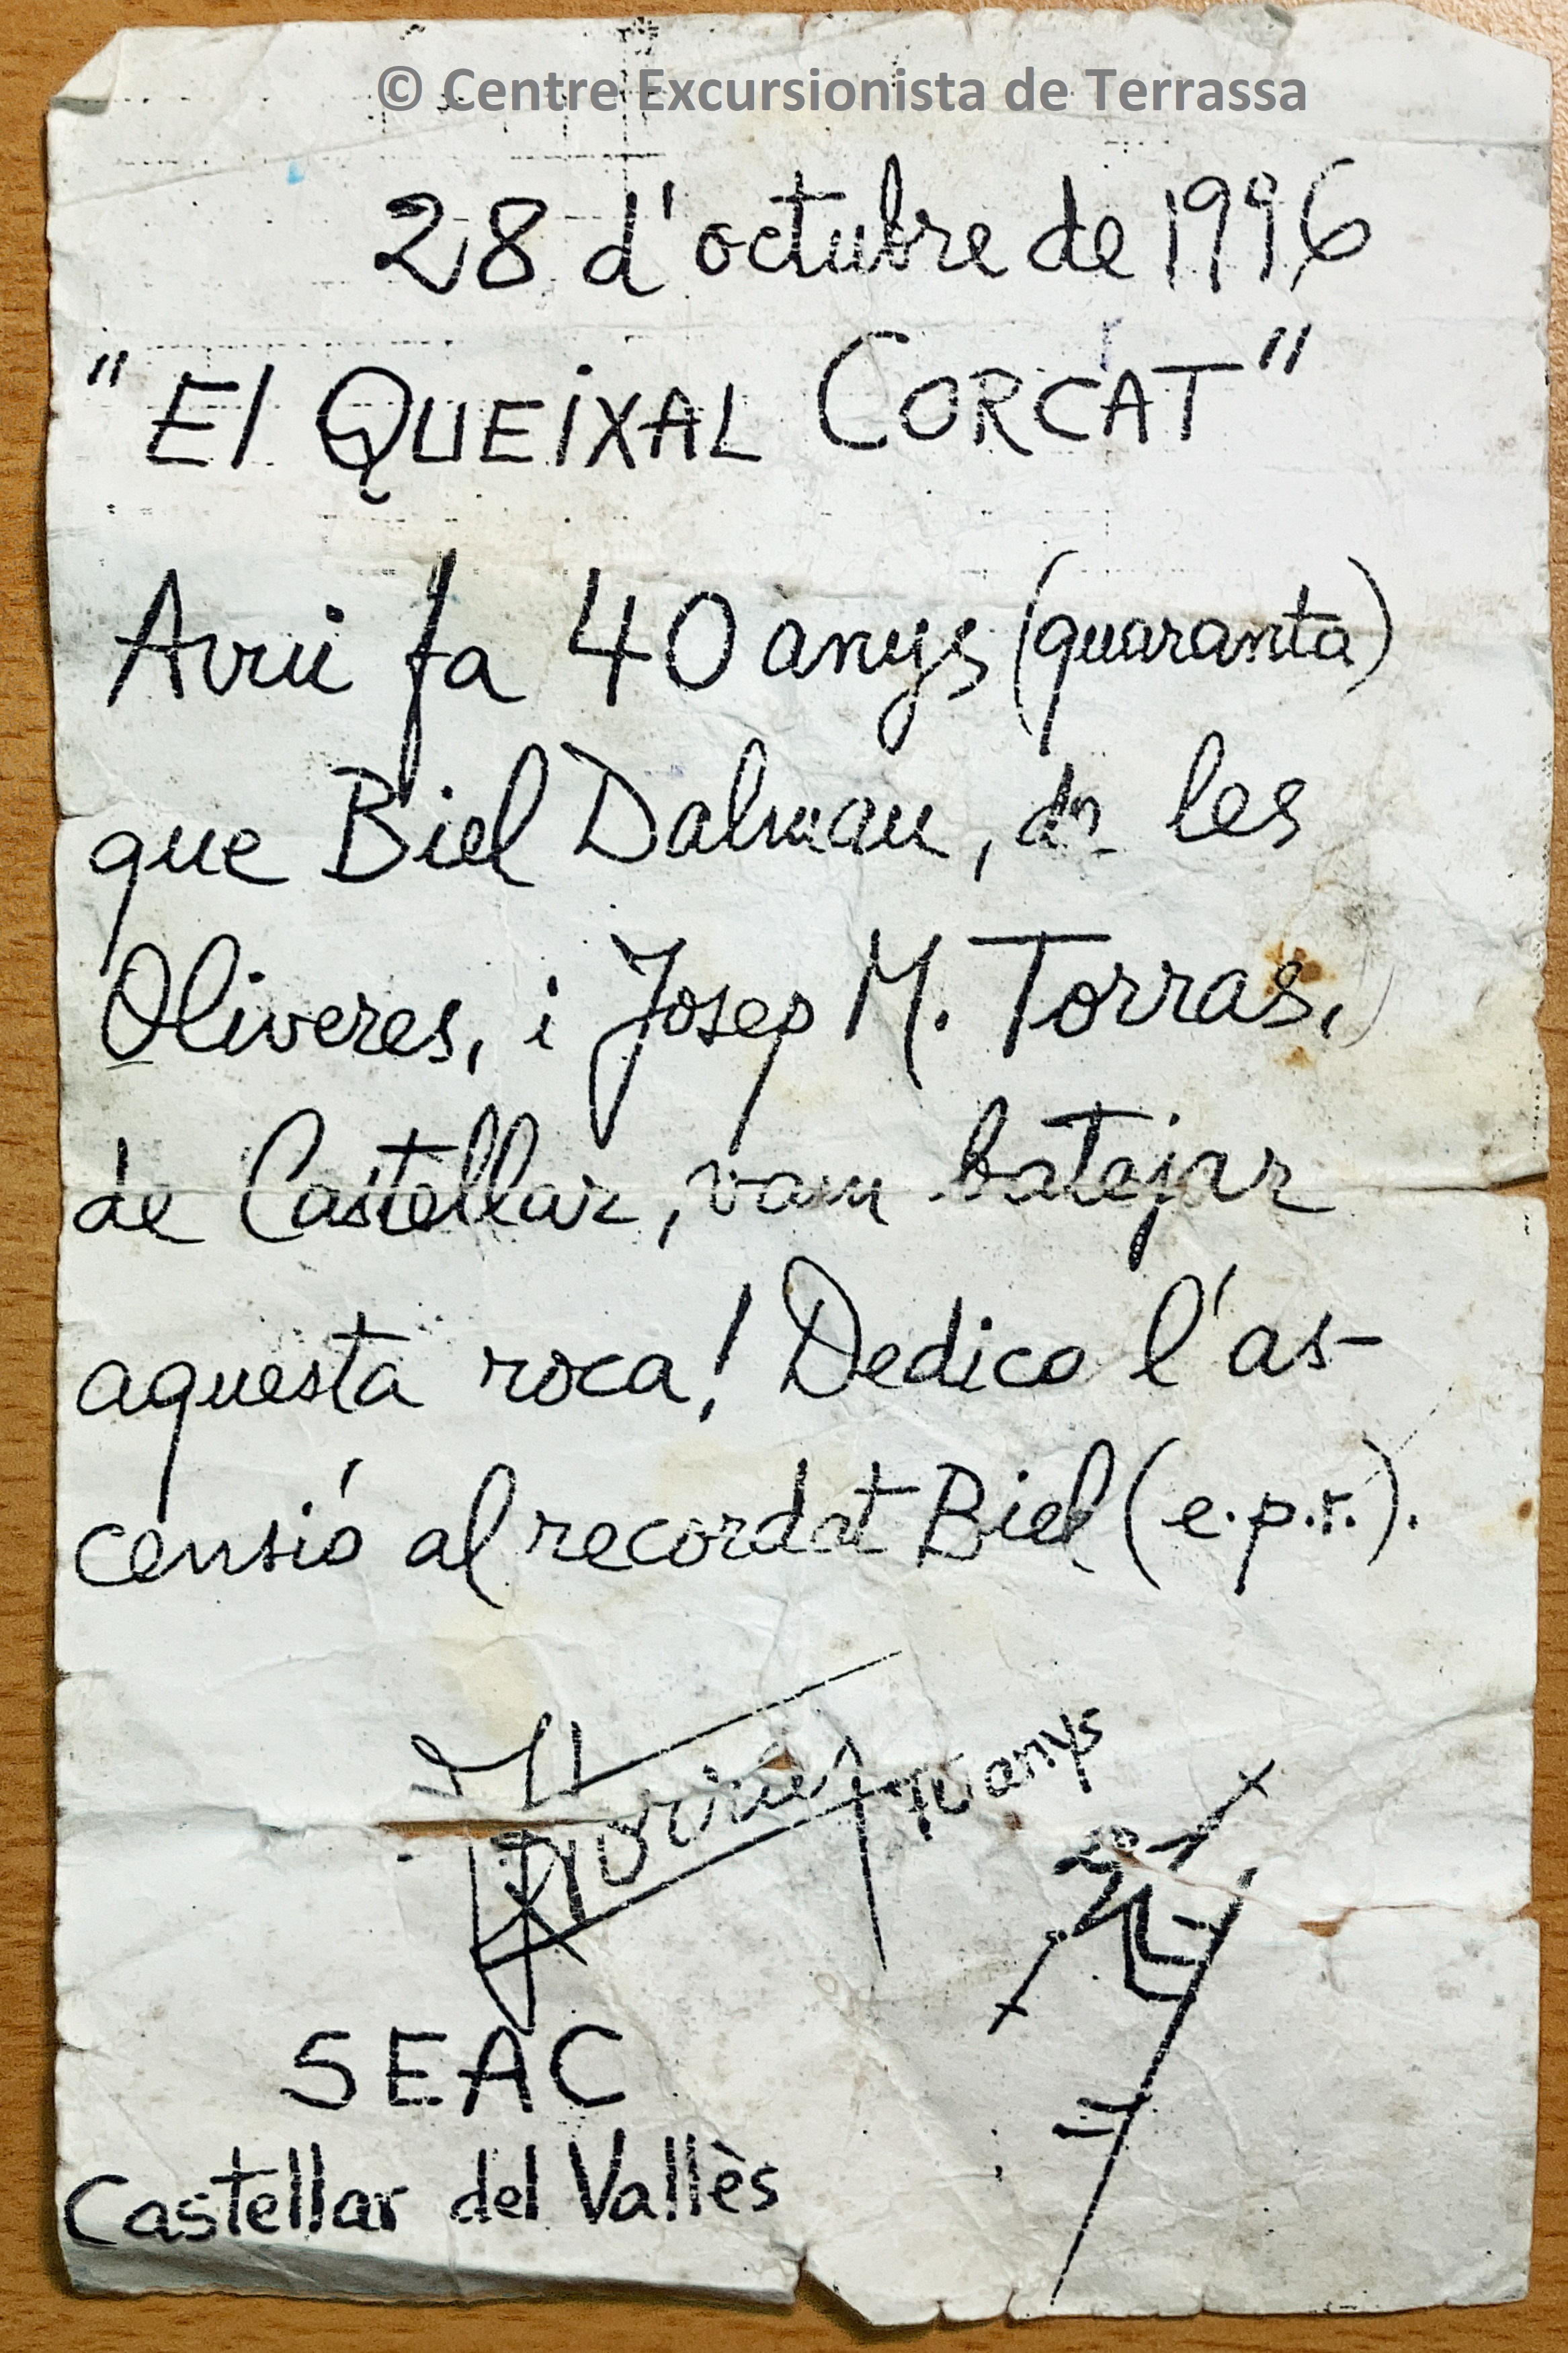 © Centre Excursionista de Terrassa
28 d'octubre de 1996
"El QUEIXAL CORCAT"
Avui fa 40 anys (quaranta)
que Biel Dalmau, de les
Oliveres, i Josep M. Torras,
de Castellar, vam batejar
aquesta roca! Dedico l'as-
censió al recordat Biel (e.p.r.).
anys
SEAC
Castellar del Vallès